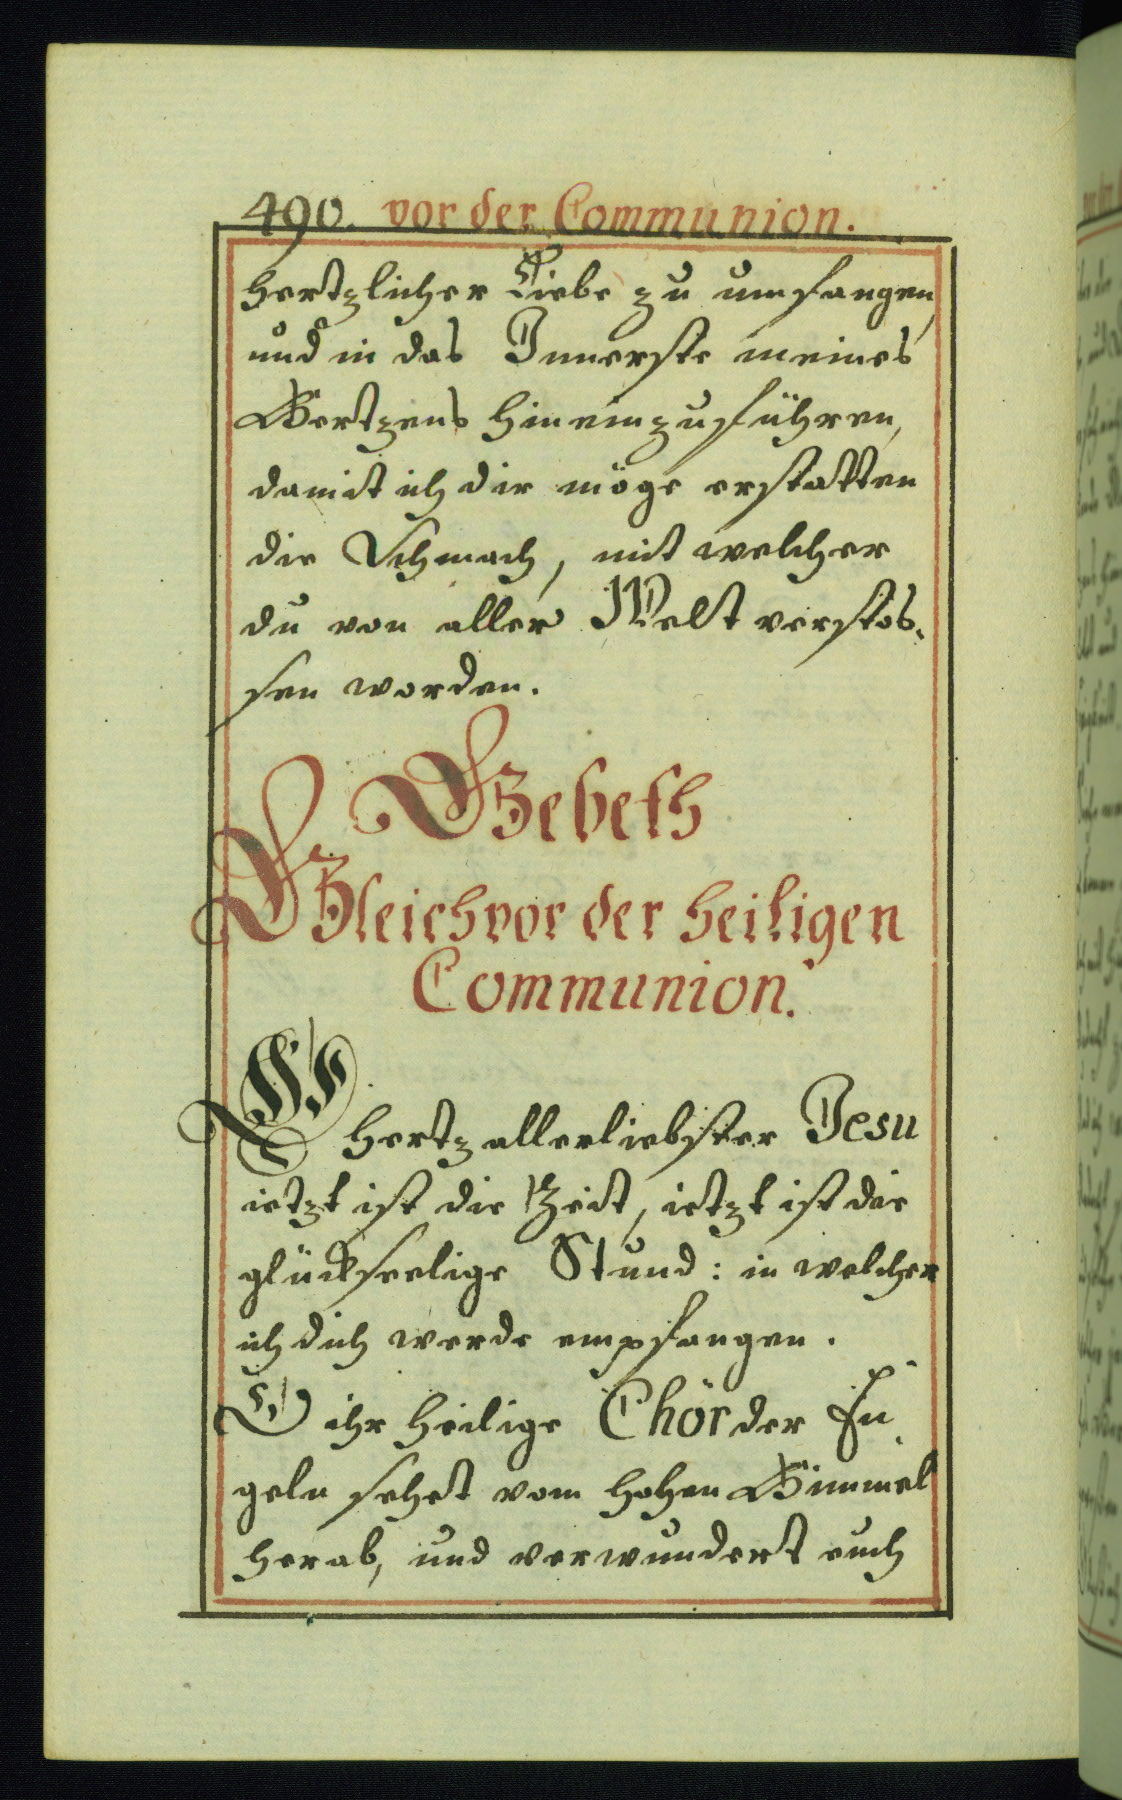 490. vor der Communion.
hertzlicher Liebe zu umfangen,
und in das Innerste meines
Hertzens hineinzuführen,
damit ich dir möge erstatten
die Schmach, mit welcher
du von aller Welt verstos-
sen worden.
Gebeth
Gleich vor der heiligen
Communion.
O hertzallerliebster Jesu
ietzt ist die Zeit, ietzt ist die
glückseelige Stund: in welcher
ich dich werde empfangen.
O ihr heilige Chör der En-
geln sehet vom hohen Himmel
herab, und verwundert euch